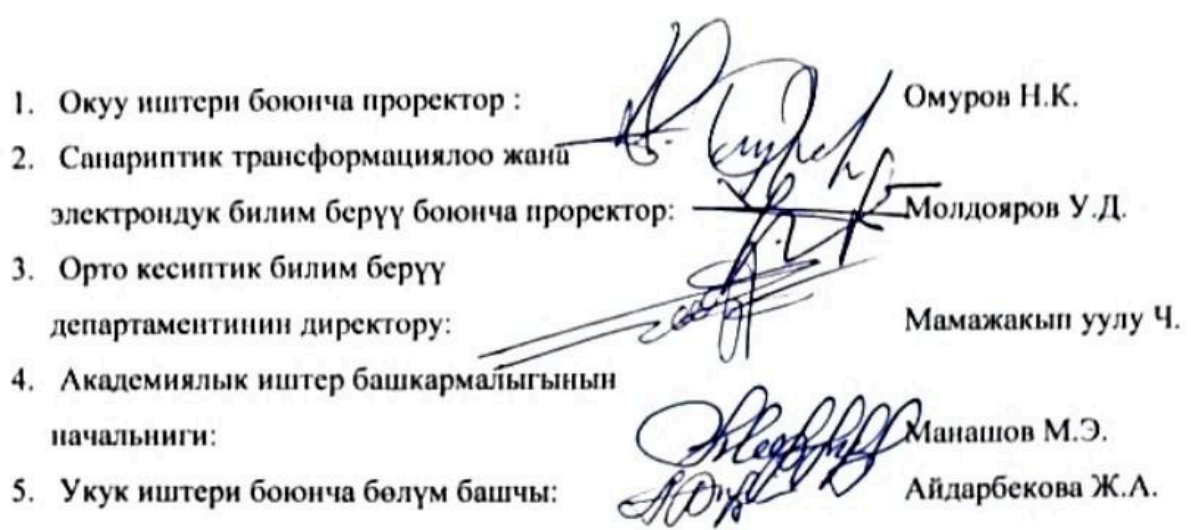 1. Окуу иштери боюнча проректор : Омуров Н.К.
2. Санариптик трансформациялоо жана
электрондук билим берүү боюнча проректор: Молдояров У.Д.
3. Орто кесиптик билим берүү
департаментинин директору: Мамажакып уулу Ч.
4. Академиялык иштер башкармалыгынын
начальниги: Манашов М.Э.
5. Укук иштери боюнча бөлүм башчы: Айдарбекова Ж.А.